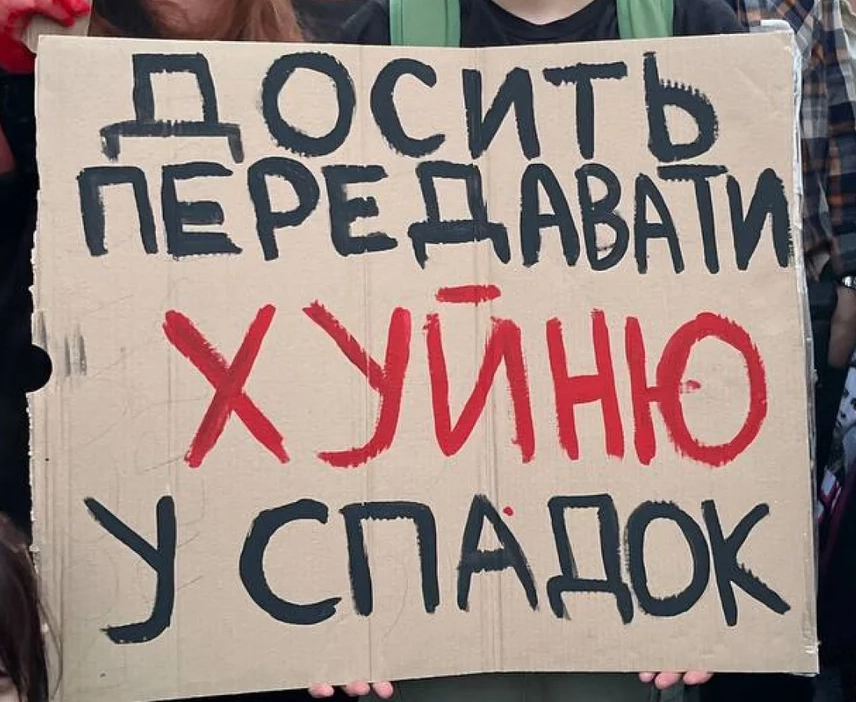 ДОСИТЬ
ПЕРЕДАВАТИ
ХУЙНЮ
У СПАДОК